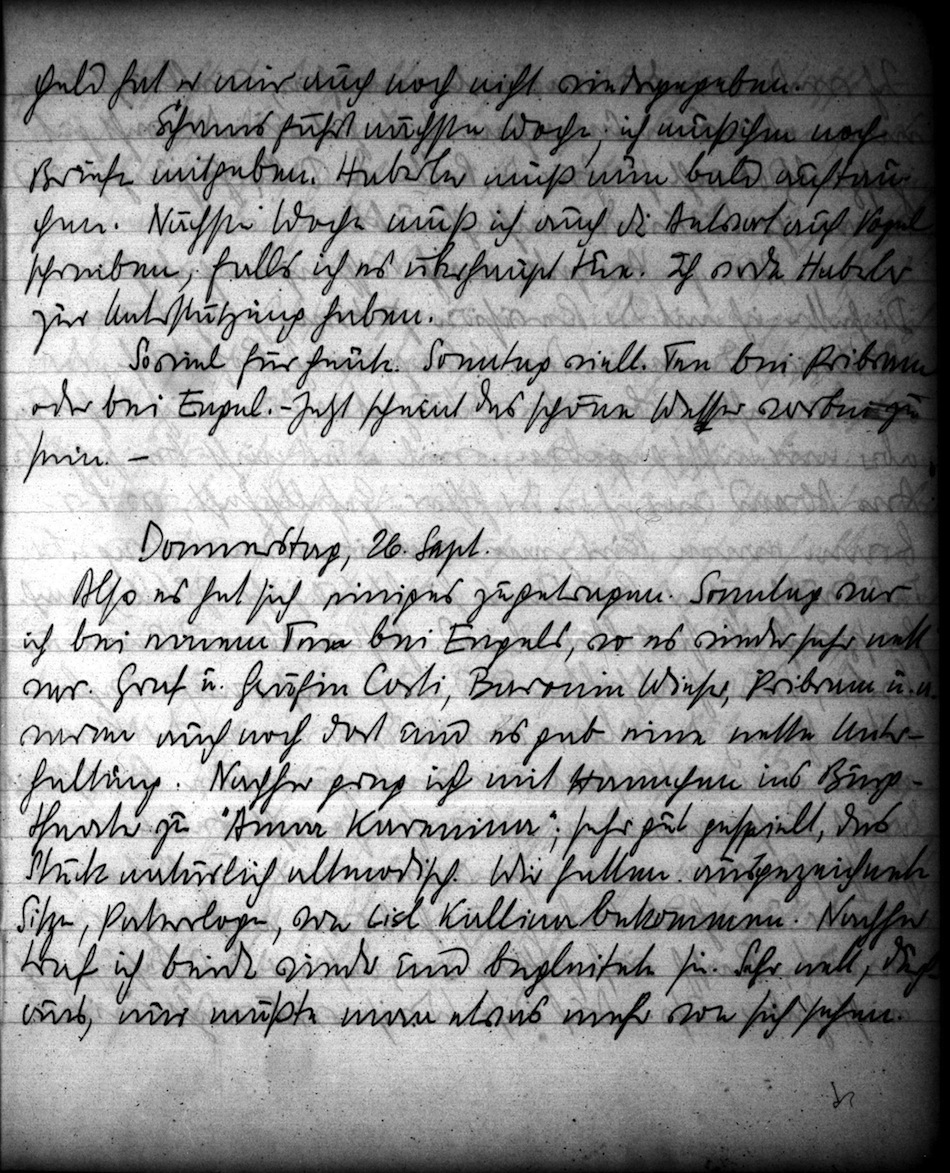 Geld hat er mir auch noch nicht wiedergegeben.
Schams fährt nächste Woche, ich muß ihm noch
Briefe mitgeben. Haberler muß nun bald auftau-
chen. Nächste Woche muß ich auch die Antwort auf Vogel
schreiben, falls ich es überhaupt tue. Ich werde Haberler
zur Unterstützung haben.
Soviel für heute. Sonntag viell. Tee bei Pribram
oder bei Engel. – Jetzt scheint das schöne Wetter vorbei zu
sein. –
Donnerstag, 26. Sept.
Also es hat sich einiges zugetragen. Sonntag war
ich bei einem Tee bei Engels, wo es wieder sehr nett
war. Graf u. Gräfin Corti, Baronin Wieser, Pribram u. a.
waren auch noch dort und es gab eine nette Unter-
haltung. Nachher ging ich mit Hannchen ins Burg-
theater zu "Anna Karenina"; sehr gut gespielt, das
Stück natürlich altmodisch. Wir hatten ausgezeichnete
Sitze, Parterreloge, von Lisl Kallina bekommen. Nachher
traf ich beide wieder und begleitete sie. Sehr nett, durch-
aus, nur müßte man etwas mehr von sich sehen.